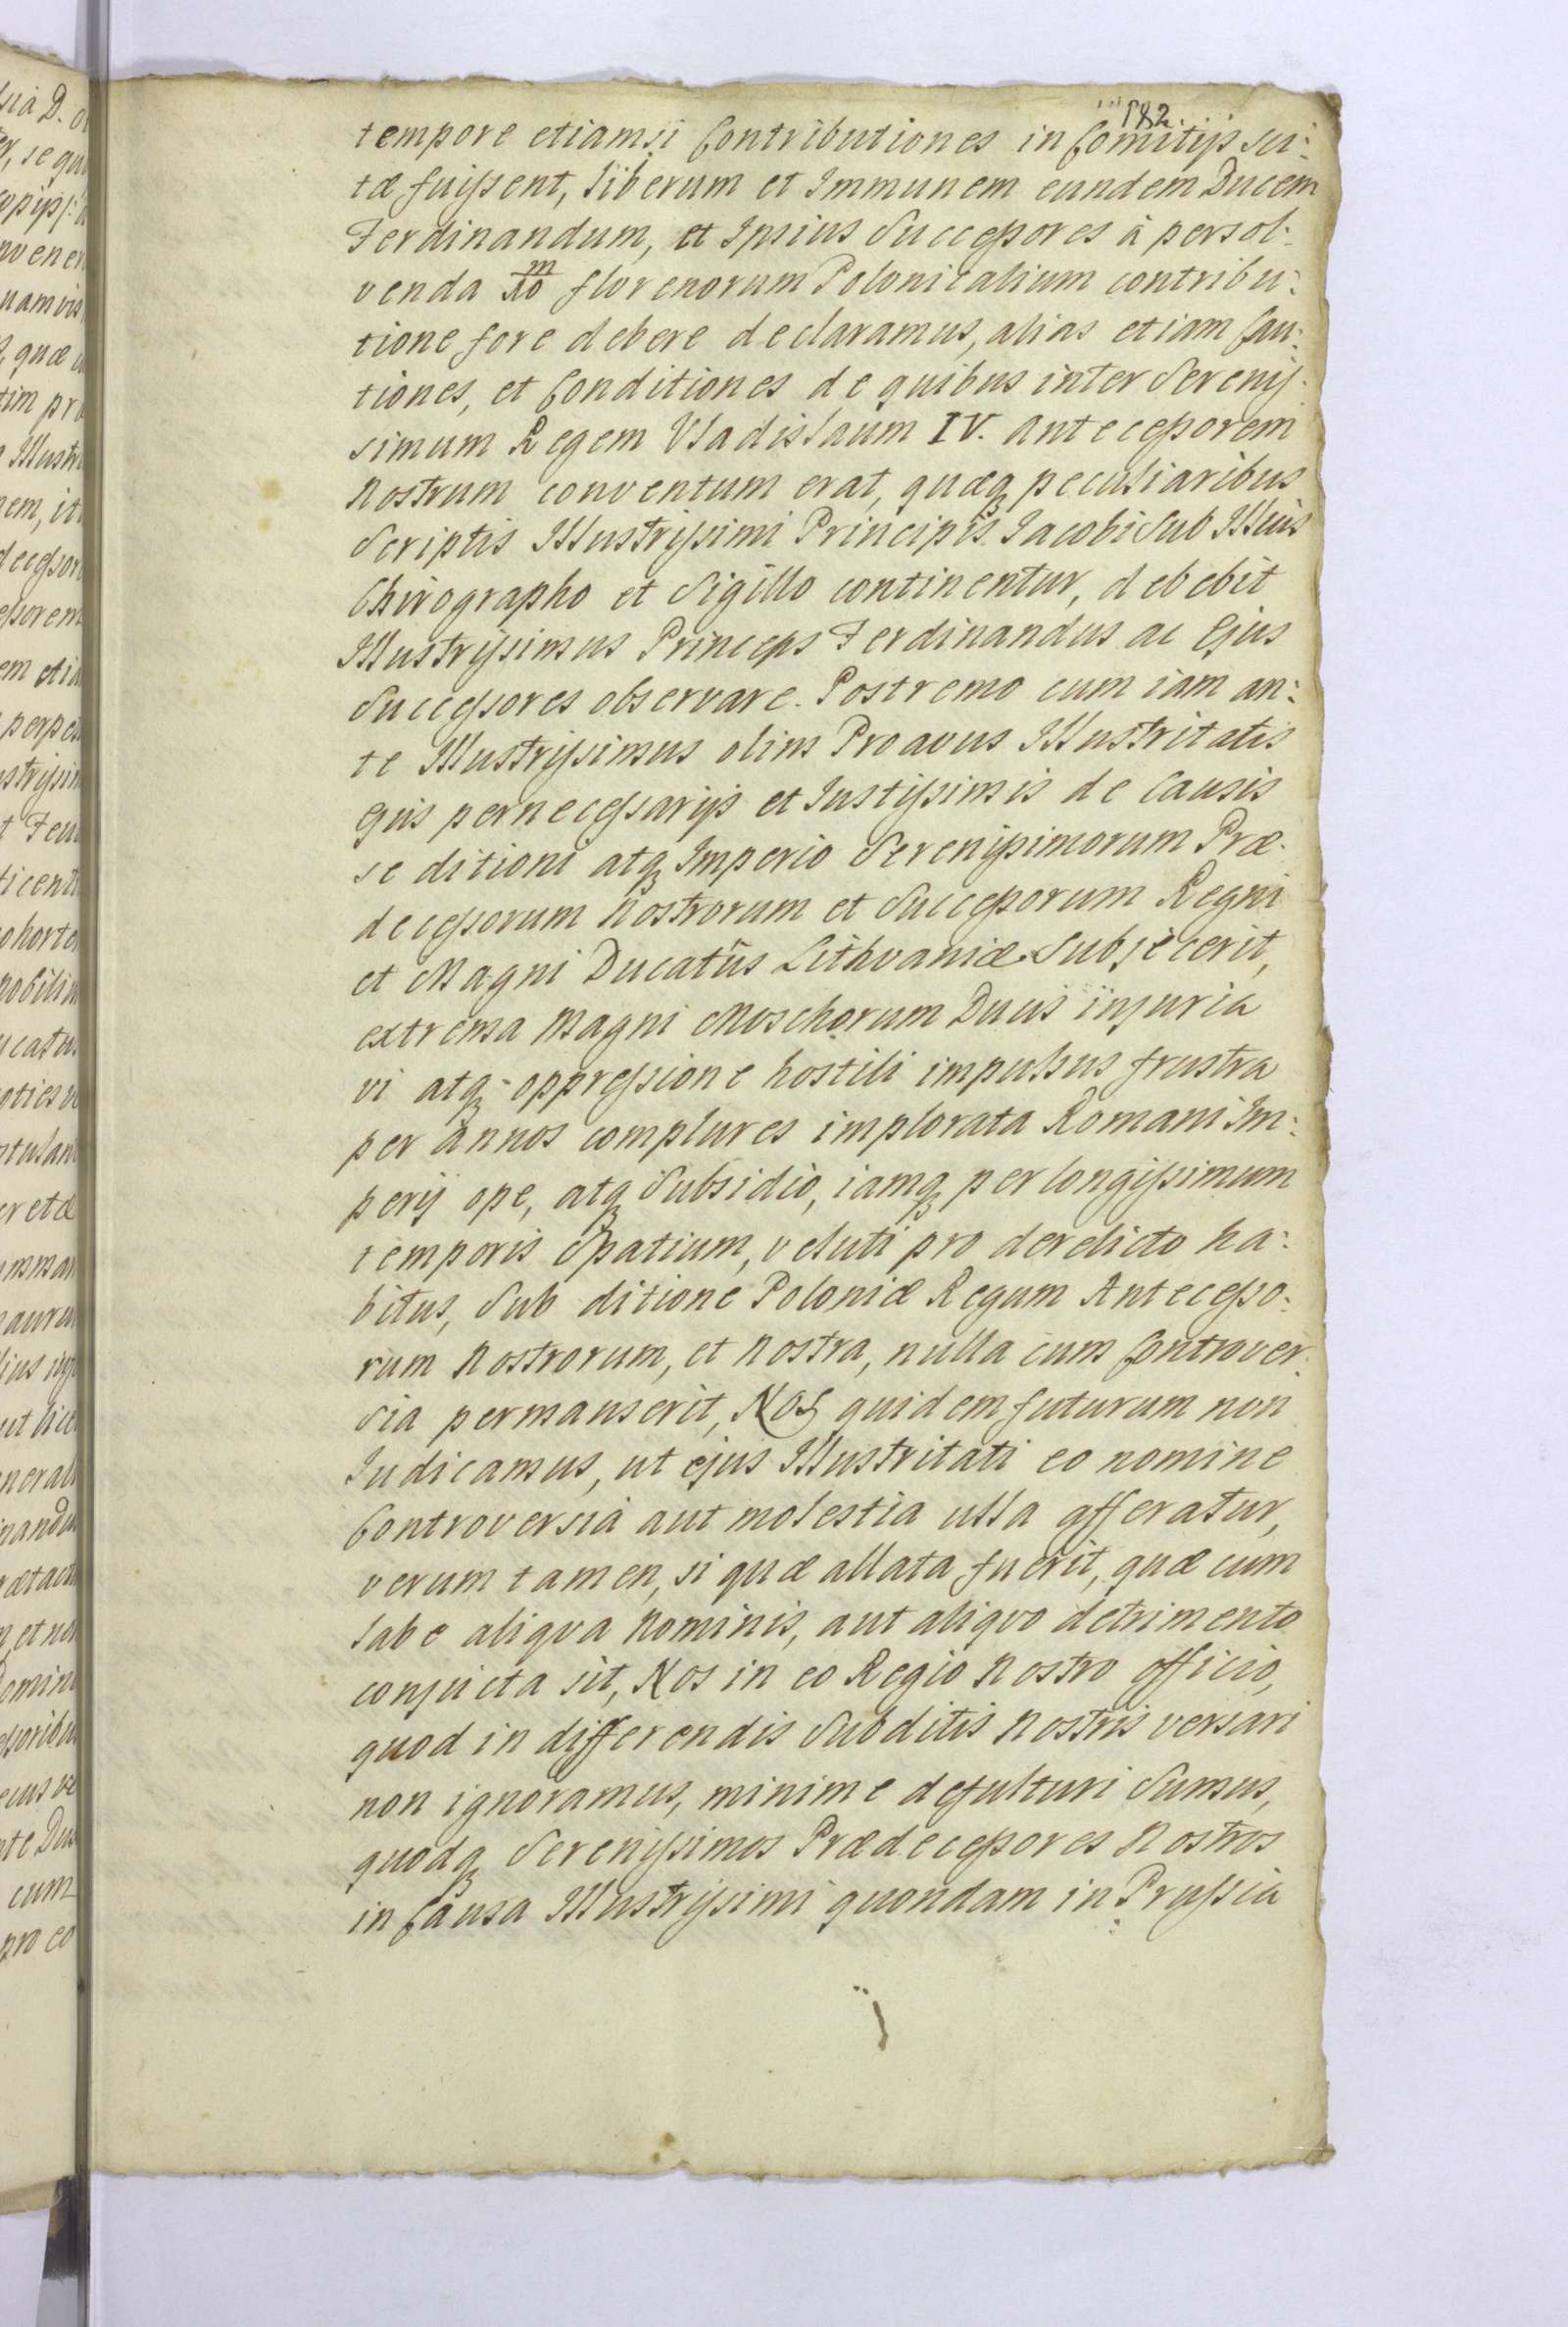 182.
tempore etiamsi Contributiones in Comitijs sci:
tæ fuissent, liberum et Immunem eundem Ducem
Ferdinandum, et Ipsius Successores à persol:
venda m/10 florenorum Polonicalium contribu:
tione fore debere declaramus, alias etiam Cau:
tiones, et Conditiones de quibus inter Serenis:
simum Regem Vladislaum IV. Antecessorem
Nostrum conventum erat, quæq peculiaribus
Scriptis Illustrissimi Principis Iacobi Sub Illius
Chirographo et Sigillo continentur, debebit
Illustrissimus Princeps Ferdinandus ac Ejus
Successores observare. Postremo cum iam an:
te Illustrissimus olim Proavus Illustritatis
Ejus pernecessarijs et Iustissimis de Causis
se ditioni atq Imperio Serenissimorum Præ:
decessorum Nostrorum et Successorum Regni
et Magni Ducatûs Lithvaniæ Subjecerit,
extrema Magni Moschorum Ducis injuria
vi atq oppressione hostili impulsus frustra
per annos complures implorata Romani Im:
perij ope, atq Subsidio, iamq per longissimum
temporis Spatium, veluti pro derelicto ha:
bitus, Sub ditione Poloniæ Regum Antecesso:
rum Nostrorum, et Nostra, nulla cum Controver:
sia permanserit, NOS quidem futurum non
Iudicamus, ut ejus Illustritati eo nomine
Controversia aut molestia ulla afferatur,
verum tamen, si quæ allata fuerit, quæ cum
labe aliqva Nominis, aut aliqvo detrimento
conjucta sit, Nos in eo Regio Nostro officio,
quod in differendis Subditis Nostris versari
non ignoramus, minime defulturi Sumus,
quodq Serenissimos Prædecessores Nostros
in Causa Illustrissimi quondam in Prussia